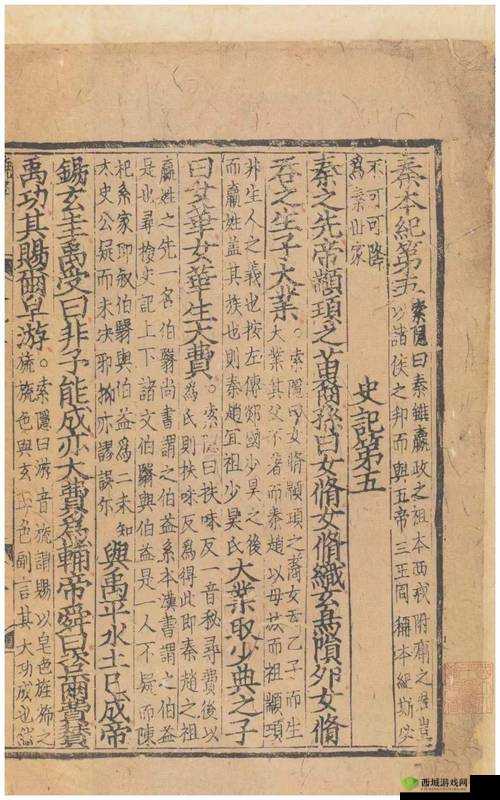 秦本紀第五
索隱曰秦雖嬴政之祖本西戎附庸之君豈
以諸侯之邦而與五帝三王同稱本紀斯必
不可可降
爲秦世家
史記第五
秦之先帝顓頊之苗裔孫曰女脩女脩織玄鳥隕卵女脩
吞之生子大業
。索隱曰女脩顓頊之裔女吞乙子而生
大業其父不著而秦趙以母族而祖顓頊
非生人之義也按左傳郯國少昊之後
而嬴姓其族也則秦趙宜祖少昊氏
大業取少典之子
曰女華女華生大費
。索隱曰扶味反一音秘尋費後以
爲氏則扶味反爲得此即秦趙之祖
嬴姓之先一名伯翳尚書謂之伯益系本漢書謂之伯益
是也尋檢史記上下諸文伯翳與伯益是一人不疑而陳
杞系家即敘伯翳與伯益爲二未知
太史公疑而未決邪抑亦謬誤尔
與禹平水土已成帝
錫玄圭禹受曰非予能成亦大費爲輔帝舜曰咨爾費贊
禹功其賜爾皁游
。索隱曰游音旒謂賜以皁色旌斾之
旒旒色與玄玉色副言其大功成也然
西城游戏网